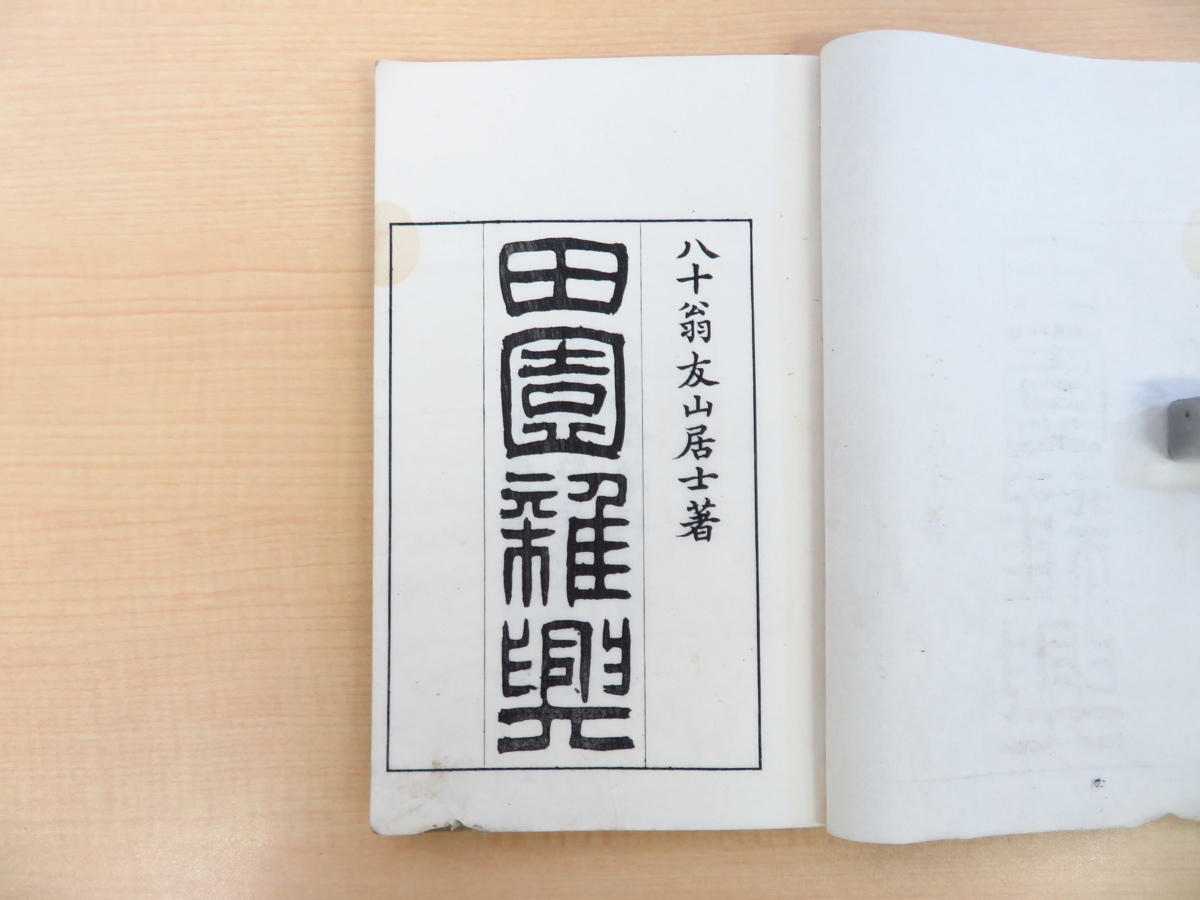 八十翁友山居士著
田園雜興